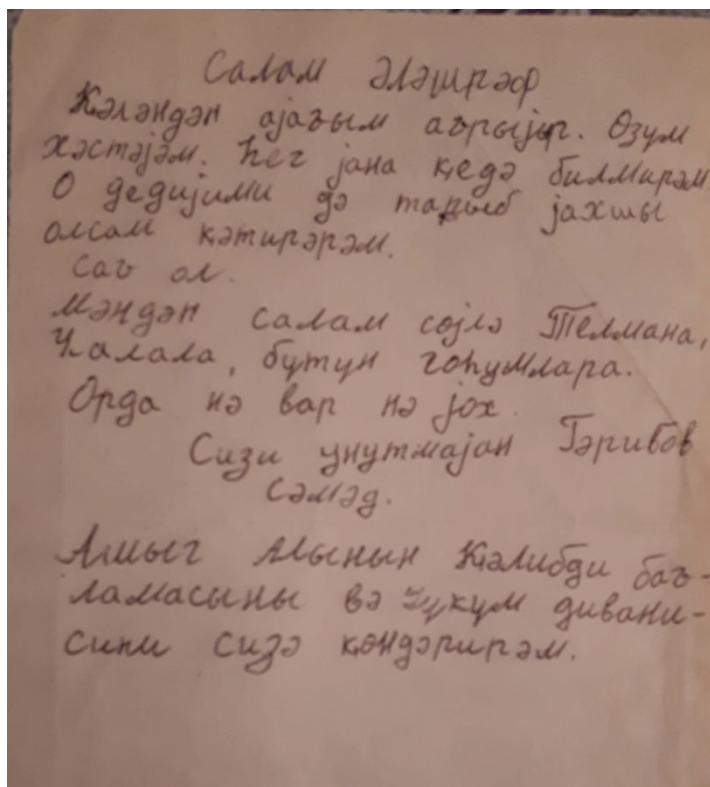 Салам Әләшрәф
Кәләндән ајағым ағрыјыр. Өзүм
хәстәјәм. Һеч јана ҝедә билмирәм.
О дедијими дә тапыб јахшы
олсам ҝәтирәрәм.
Сағ ол.
Мәндән салам сөјлә Телмана,
Ҹалала, бүтүн гоһумлара.
Орда нә вар нә јох.
Сизи унутмајан Гәрибов
Сәмәд.
Ашыг Алынын Ҝәлибди бағ-
ламасыны вә дивани-
сини сизә ҝөндәрирәм.